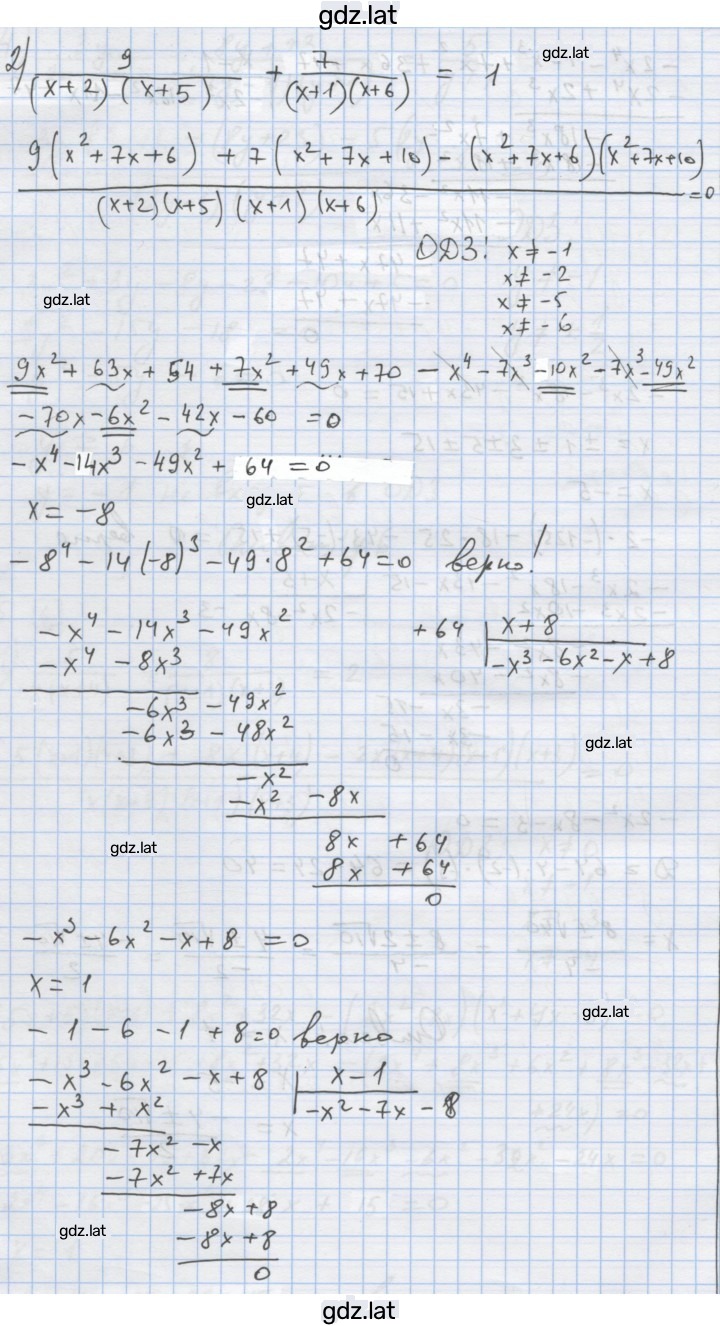 gdz.lat
2) 9/((x+2)(x+5)) + 7/((x+1)(x+6)) = 1
gdz.lat
(9(x²+7x+6) + 7(x²+7x+10) - (x²+7x+6)(x²+7x+10))/((x+2)(x+5)(x+1)(x+6)) = 0
ОДЗ: x ≠ -1
x ≠ -2
gdz.lat
x ≠ -5
x ≠ -6
9x² + 63x + 54 + 7x² + 49x + 70 - x⁴ - 7x³ - 10x² - 7x³ - 49x²
- 70x - 6x² - 42x - 60 = 0
- x⁴ - 14x³ - 49x² + 64 = 0
gdz.lat
x = -8
- 8⁴ - 14(-8)³ - 49·8² + 64 = 0 верно!
- x⁴ - 14x³ - 49x² + 64 | x + 8
- x⁴ - 8x³ | -x³ - 6x² - x + 8
-6x³ - 49x²
-6x³ - 48x²
gdz.lat
-x²
-x² - 8x
8x + 64
gdz.lat
8x + 64
0
- x³ - 6x² - x + 8 = 0
x = 1
gdz.lat
- 1 - 6 - 1 + 8 = 0 верно
- x³ - 6x² - x + 8 | x - 1
- x³ + x² | -x² - 7x - 8
- 7x² - x
- 7x² + 7x
-8x + 8
gdz.lat
-8x + 8
0
gdz.lat